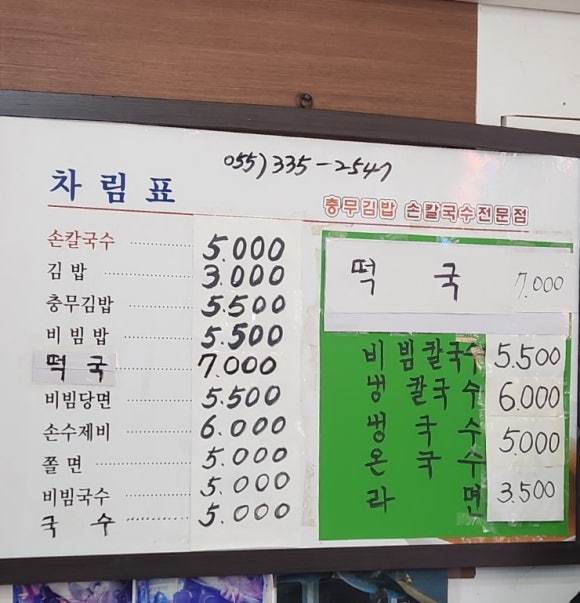 055) 335-2547
차림표
충무김밥 손칼국수전문점
손칼국수 5.000
김밥 3.000
충무김밥 5.500
비빔밥 5.500
떡국 7.000
비빔당면 5.500
손수제비 6.000
쫄면 5.000
비빔국수 5.000
국수 5.000
떡국 7.000
비빔칼국수 5.500
냉칼국수 6.000
냉국수 5.000
온국수
라면 3.500